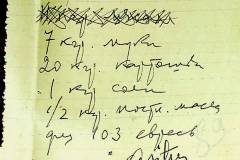 7 кгр. муки
20 кгр. картошки
1 кгр. соли
1/2 кгр. постн. масла
для 103 евреев